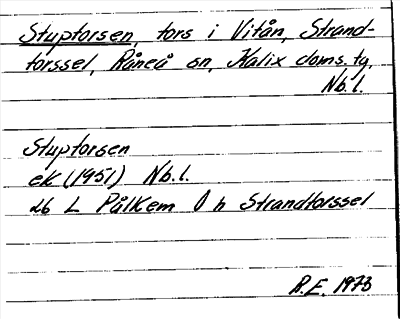 Stuptorsen, fors i Vitån, Strand-
forssel, Råneå sn, Kalix doms.tg,
Nb.l.
Stupforsen
ek (1951) Nb.l.
L Pålkem h Strandforssel
R.E. 1973